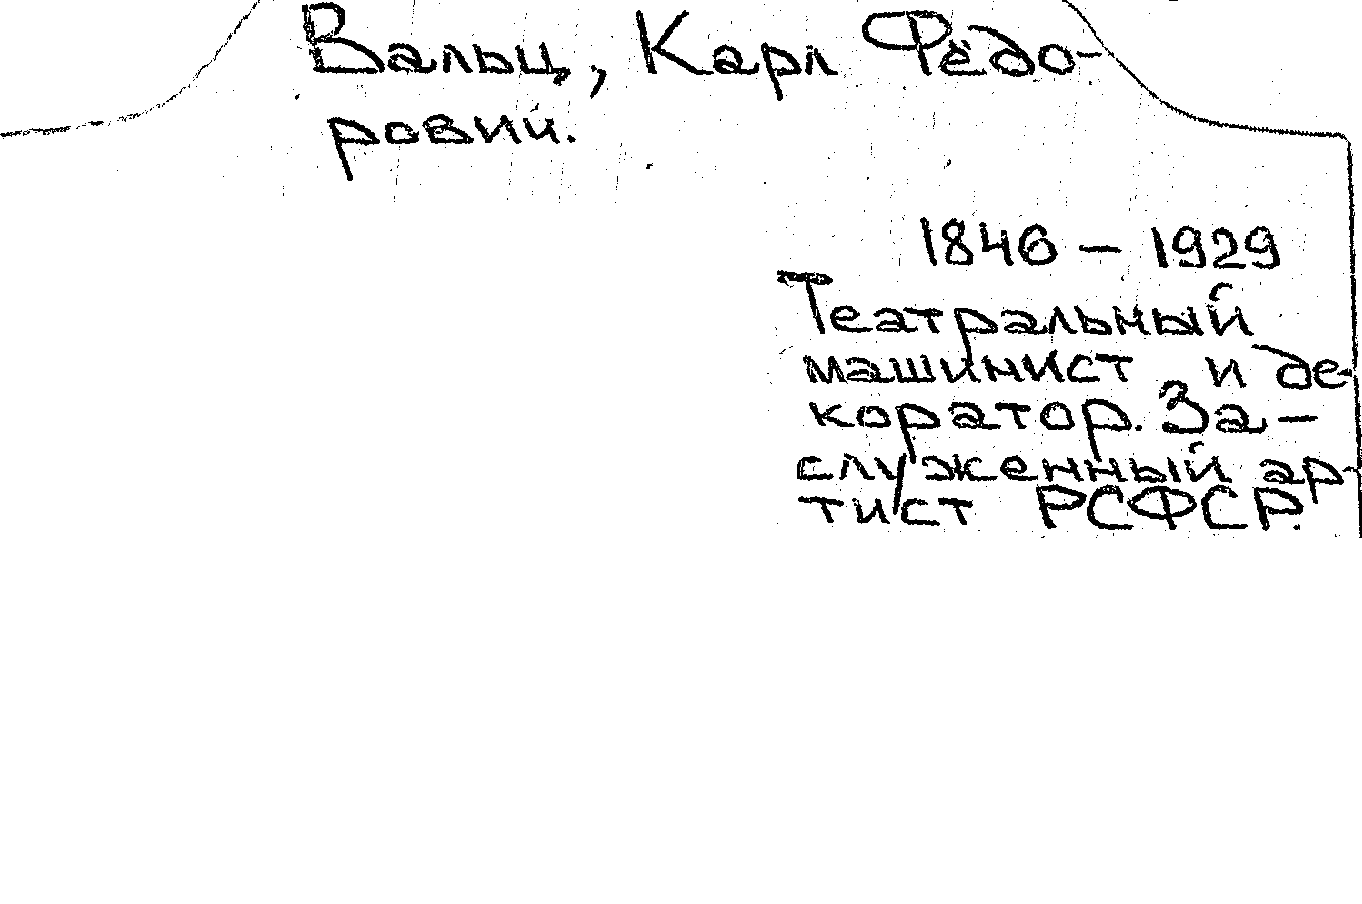 Вальц, Карл Фёдо-
рович.
1846 – 1929
Театральный
машинист и де-
коратор. За-
служенный ар-
тист РСФСР.